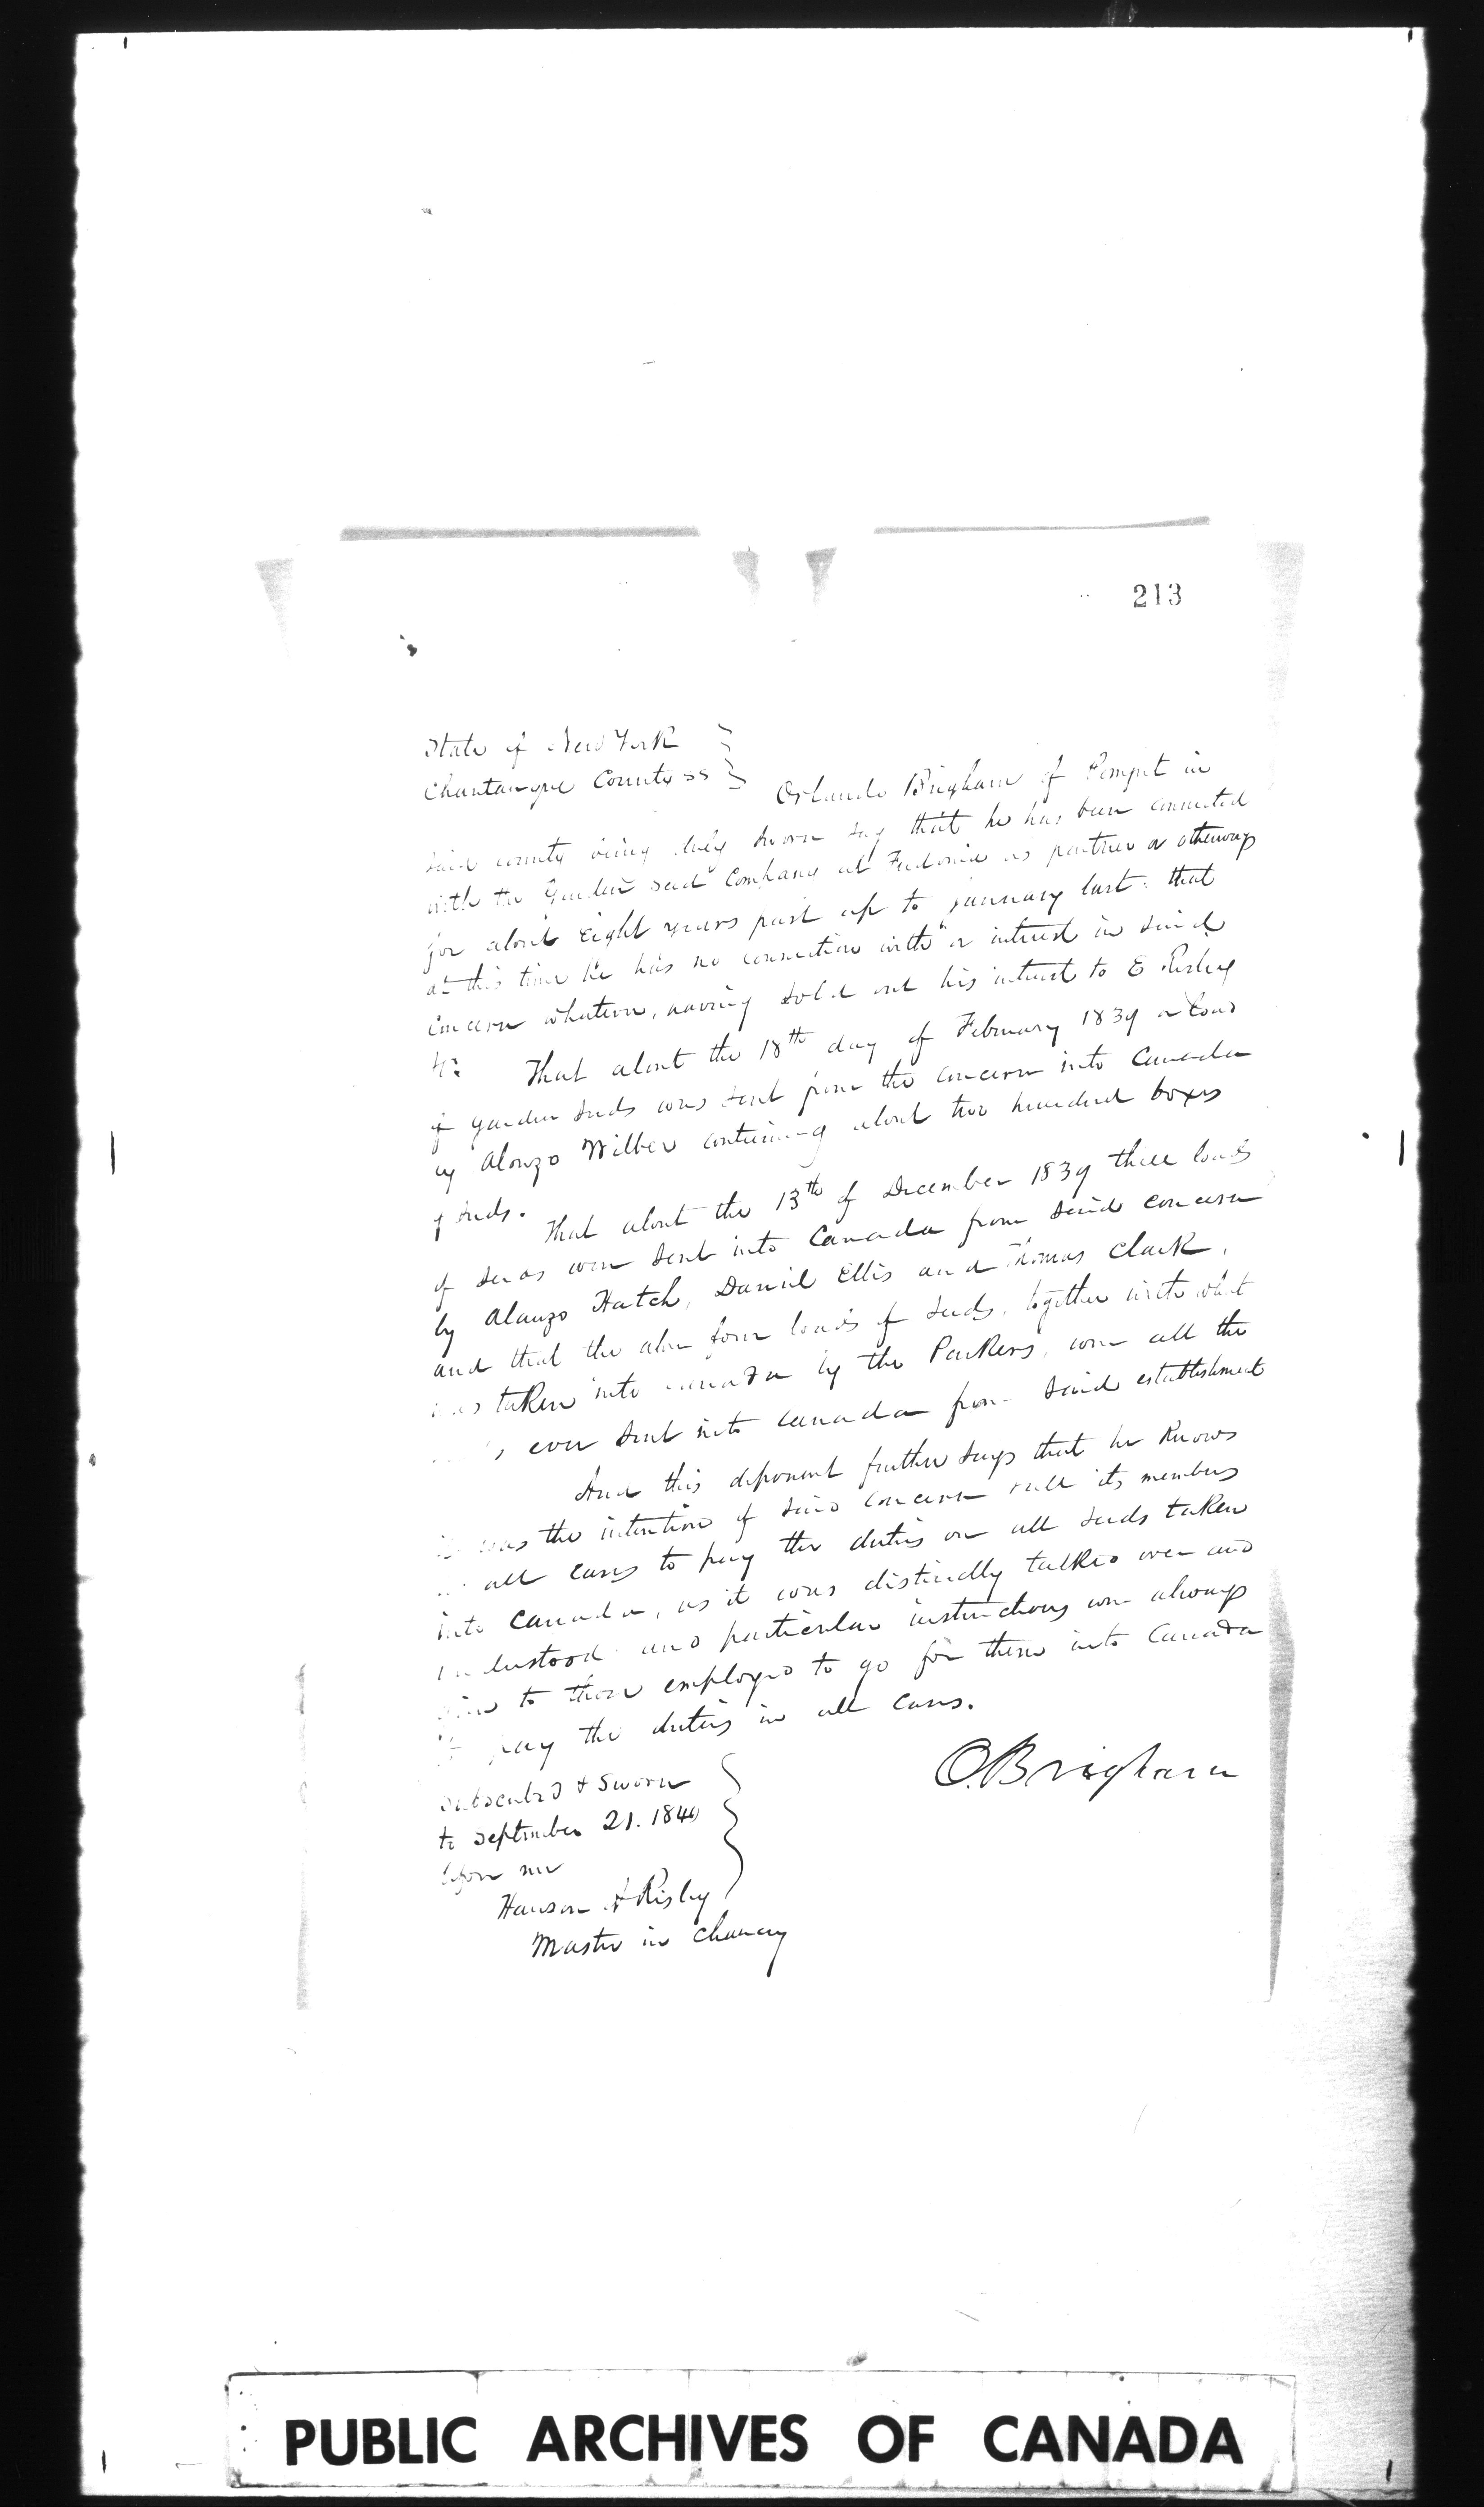 213
State of New York
Chautauque County ss
Orlando Brigham of Pomfret in
said county being duly sworn say that he has been connected
with the Garden seed Company at Fredonia as partner or otherways
for about eight years past up to January last: that
at this time he has no connection with or interest in said
concern whatever, having sold out his interest to E Risley
That about the 18th day of February 1839 a load
of garden seeds was sent from the concern into Canada
by Alonzo Wilber containing about two hundred boxes
of seeds.
That about the 13th of December 1839 three loads
of seeds were sent into Canada from said concern
by Alanzo Hatch, Daniel Ellis and Thomas Clark,
and that the above four loads of seeds, together with what
was taken into Canada by the Parkers, were all the
ever sent into Canada from said establishment
And this deponent further says that he knows
it was the intention of said concern & all its members
in all cases to pay the duties on all seeds taken
into Canada, as it was distinctly talked over and
understood and particular instructions were always
given to those employed to go for them into Canada
to pay the duties in all cases.
O. Brigham
Subscribed & Sworn
to September 21. 1840
before me
Hanson A Risley
Master in Chancery
PUBLIC ARCHIVES OF CANADA